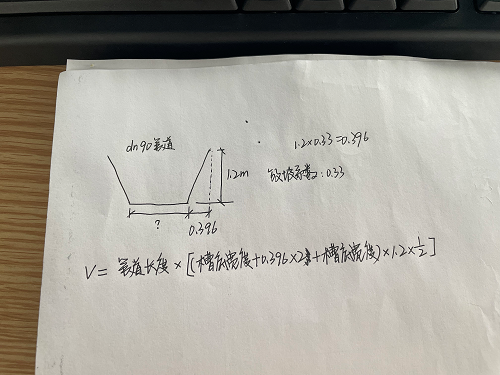 dn90管道
1.2×0.33=0.396
1.2m
放坡系数:0.33
?
0.396
V=管道长度×[(槽底宽度+0.396×2+槽底宽度)×1.2×1/2]